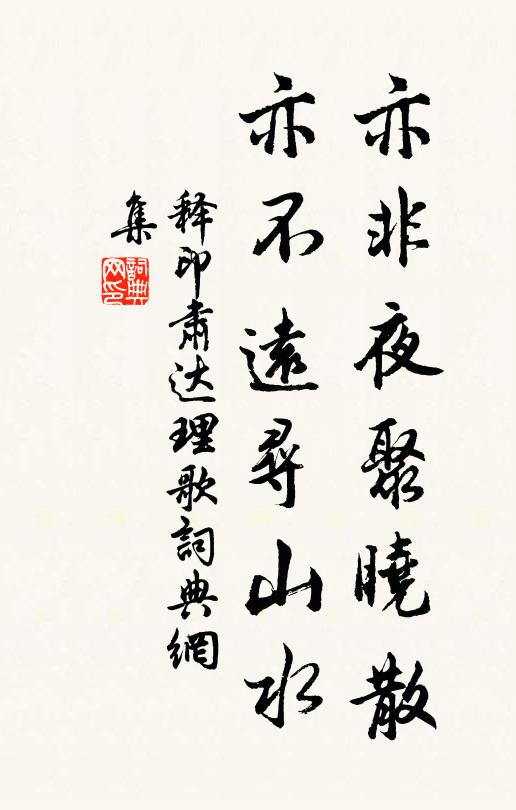 亦非夜聚曉散
亦不遠尋山水
释印肃达理歌詞典網
集
詞典
网印